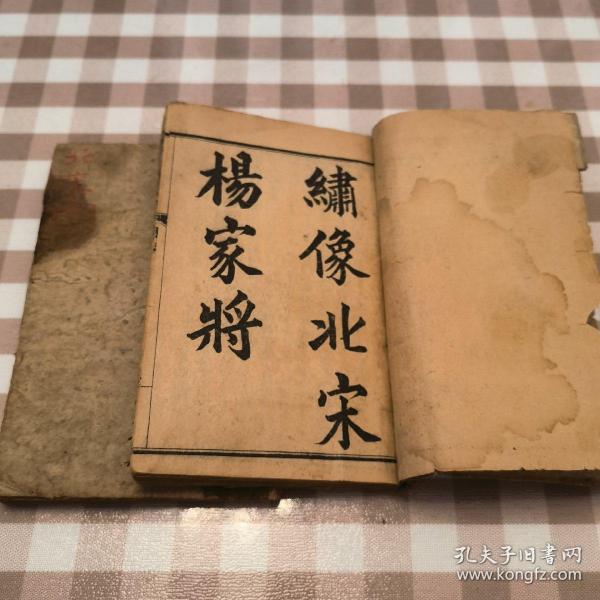 繡像北宋
楊家將
孔夫子旧书网
www.kongfz.com